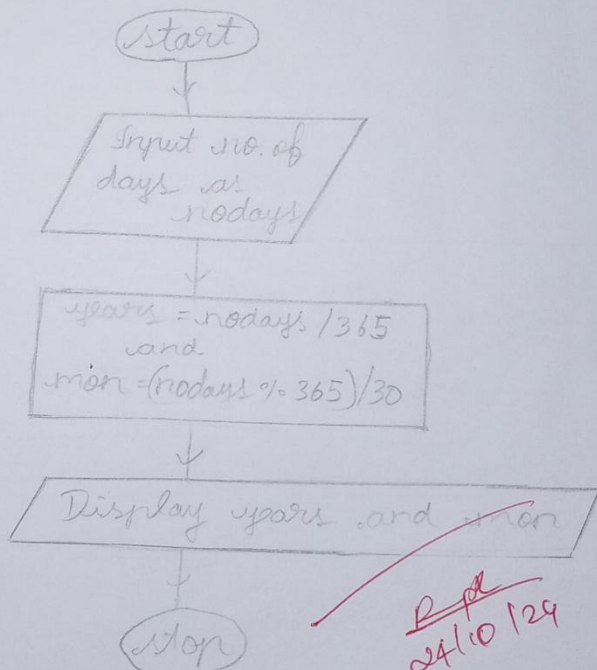 start
Input no. of
days as
nodays
years = nodays / 365
and
mon = (nodays % 365)/30
Display years and mon
24/10/24
stop